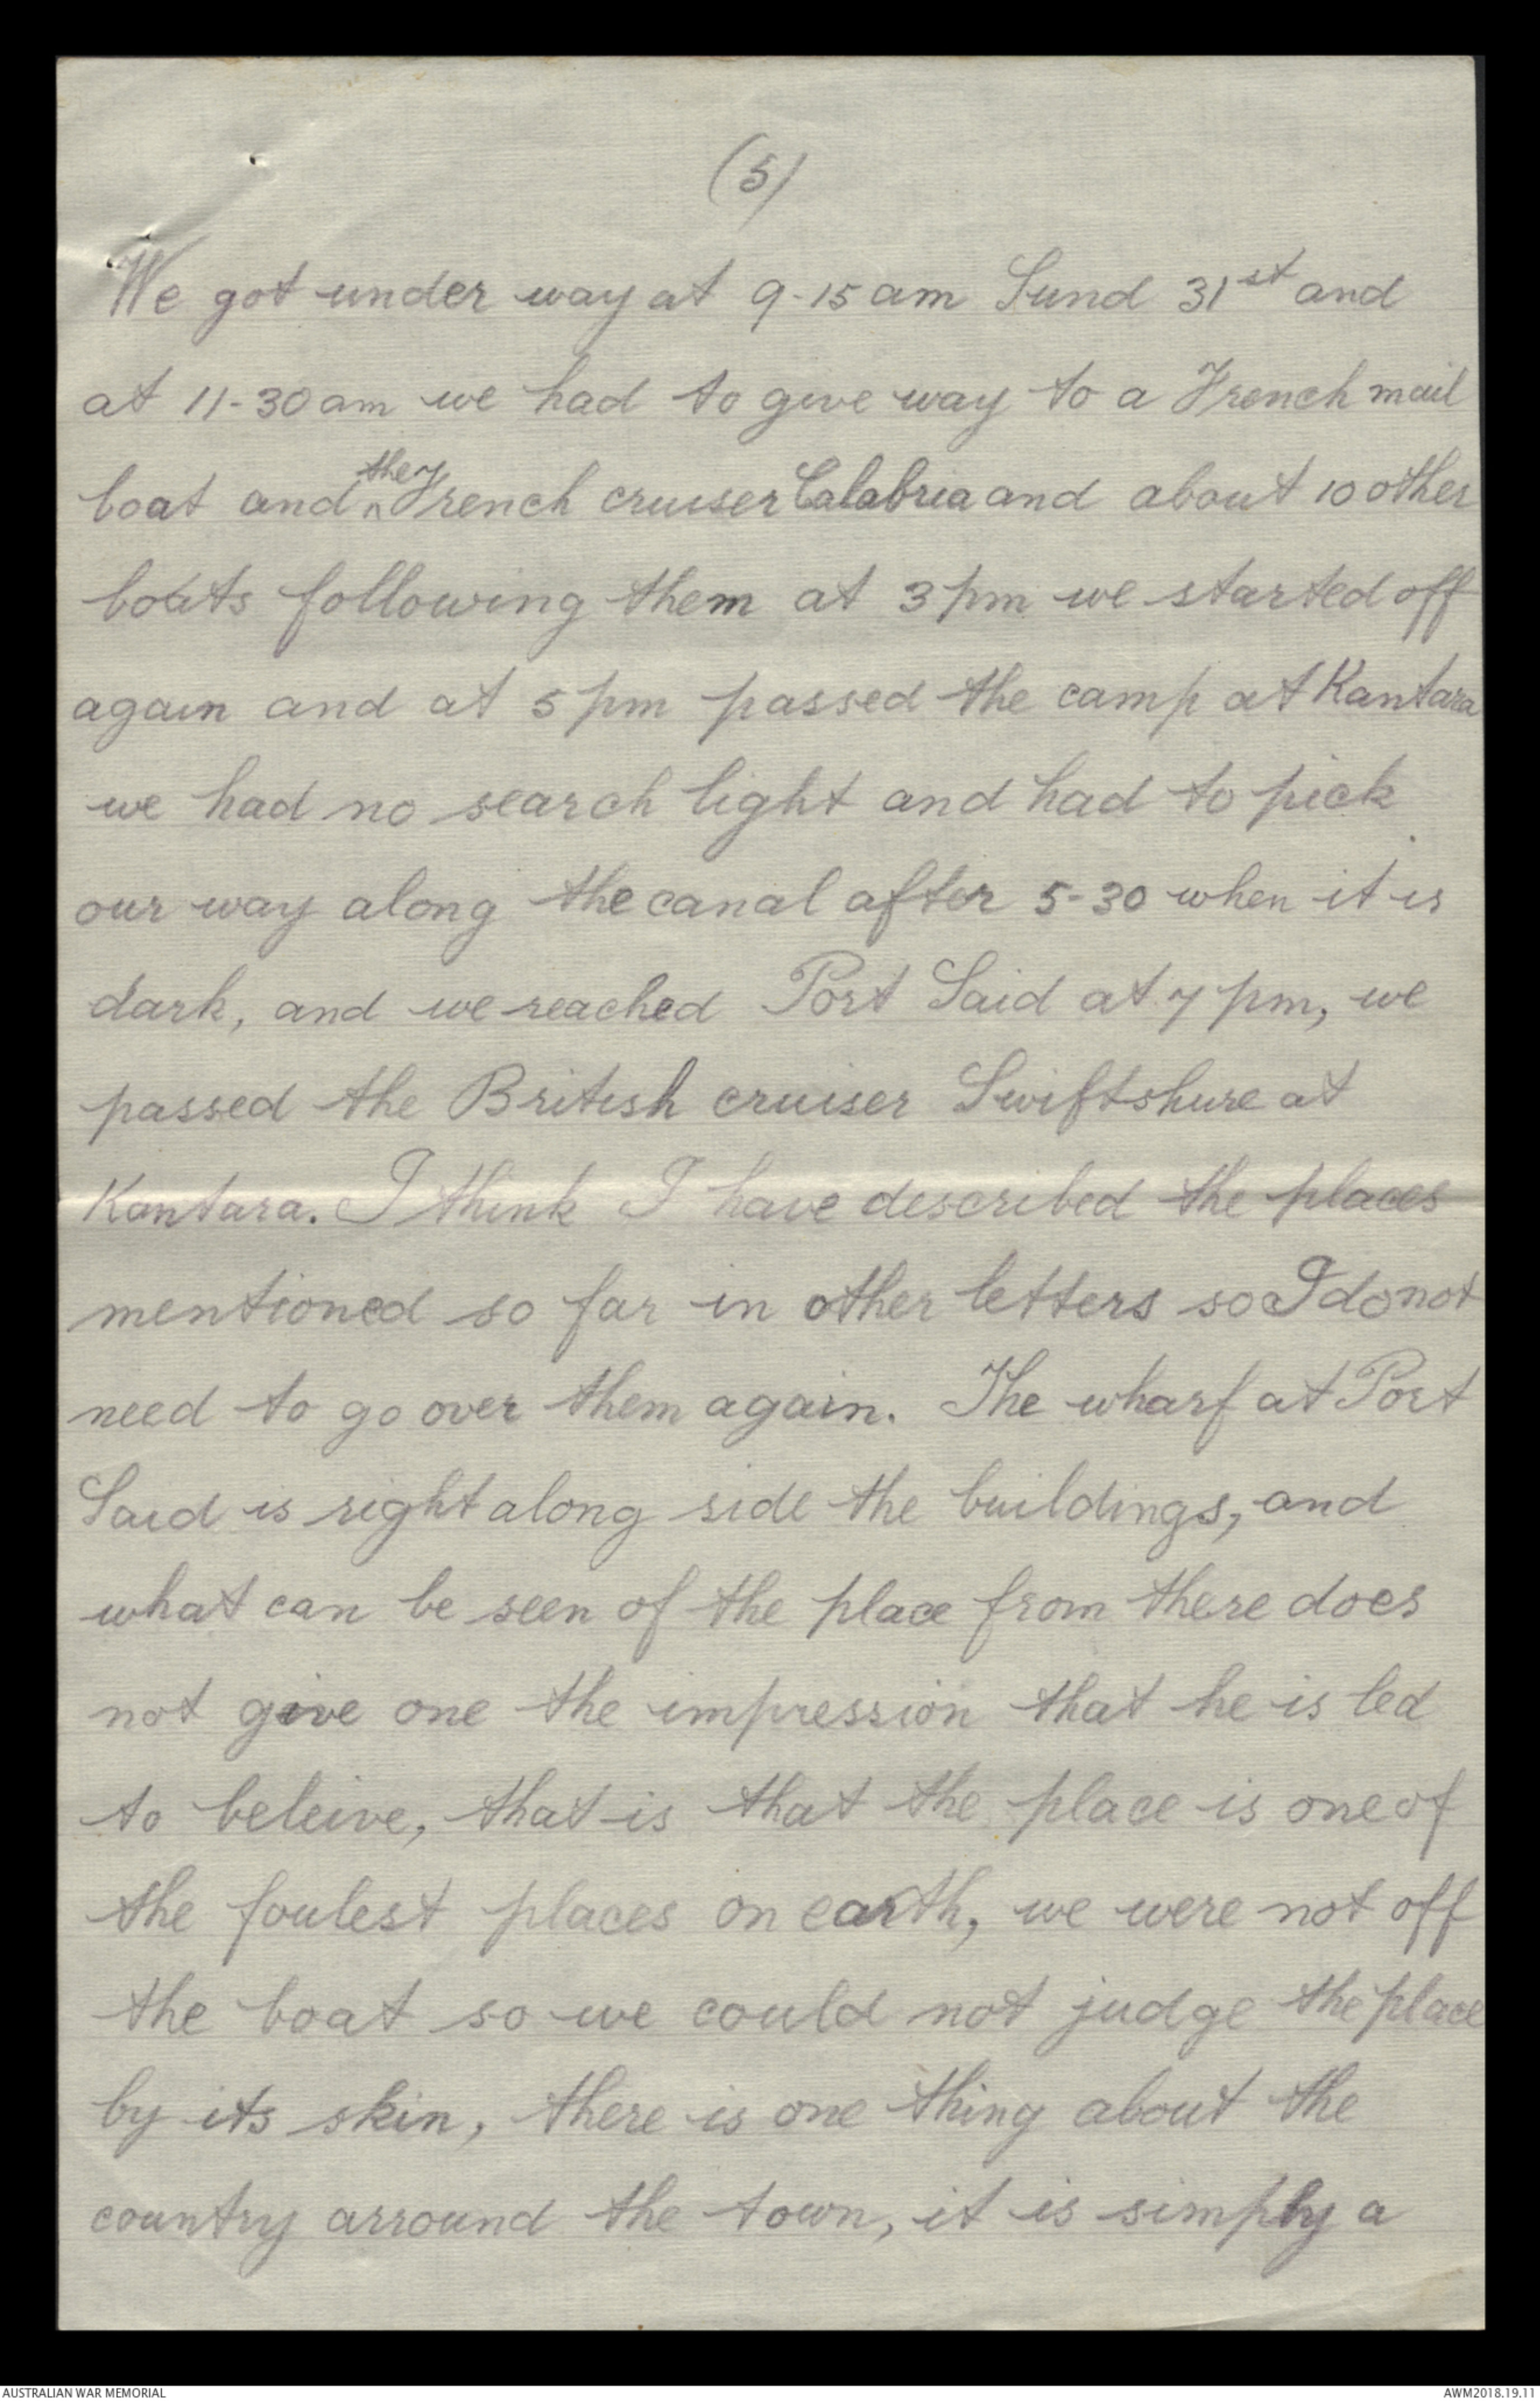 (5)
We got under way at 9-15 am Sund 31st and
at 11-30 am we had to give way to a French mail
boat and the French cruiser Calabria and about 10 other
boats following them at 3 pm we started off
again and at 5 pm passed the camp at Kantara
we had no search light and had to pick
our way along the canal after 5-30 when it is
dark, and we reached Port Said at 7 pm, we
passed the British cruiser Swiftshure at
Kantara. I think I have described the places
mentioned so far in other letters so I do not
need to go over them again. The wharf at Port
Said is right along side the buildings, and
what can be seen of the place from there does
not give one the impression that he is led
to beleive, that is that the place is one of
the foulest places on earth, we were not off
the boat so we could not judge the place
by its skin, there is one thing about the
country arround the town, it is simply a
AUSTRALIAN WAR MEMORIAL
AWM2018.19.11